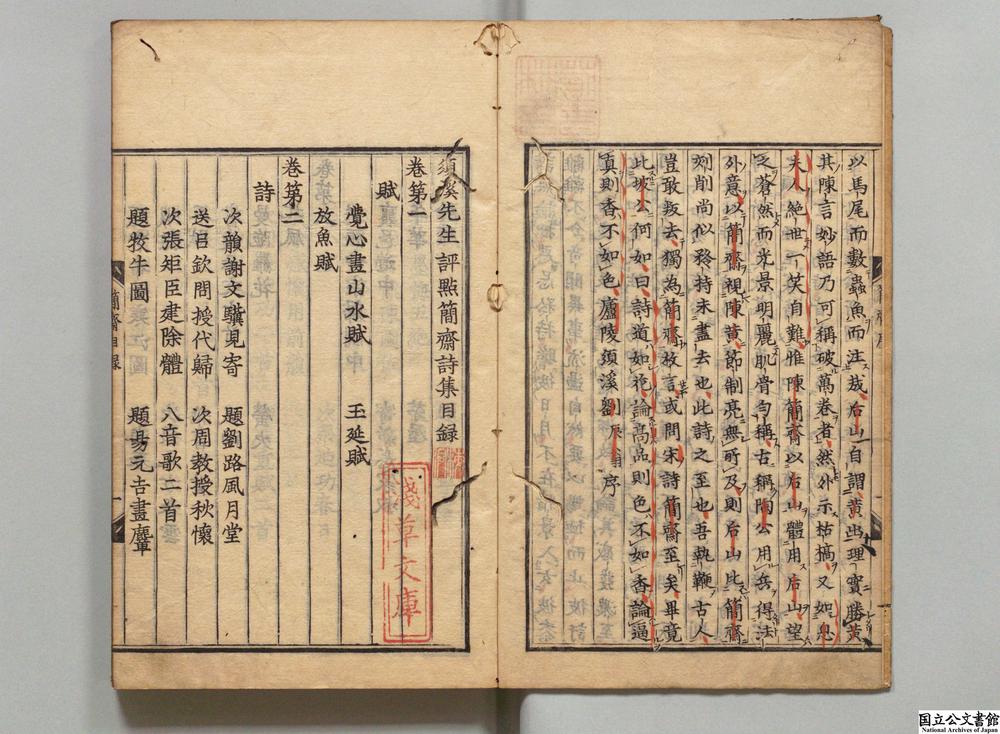 以馬尾而數蟲魚而注哉后山自謂黃出理實勝黃
其陳言妙語乃可稱破萬卷者然外示枯槁又如息
夫人絕世一笑自難惟陳簡齋以后山體用后山望
之蒼然而光景明麗肌骨勻稱古稱陶公用兵得法
外意以簡齋視陳黃節制亮無所及則后山比簡齋
刻削尚似矜持未盡去也此詩之至也吾執鞭古人
豈敢叛去獨為簡齋故言或問宋詩簡齋至矣畢竟
此坡公何如曰詩道如花論高品則色不如香論逼
真則香不如色廬陵須溪劉辰翁序
須溪先生評點簡齋詩集目錄
卷第一
賦
覺心畫山水賦 玉延賦
放魚賦
卷第二
詩
次韻謝文驥見寄 題劉路風月堂
送呂欽問授代歸 次周教授秋懷
次張矩臣建除體 八音歌二首
題牧牛圖 題易元吉畫麞
簡齋目錄
一
淺草文庫
国立公文書館
National Archives of Japan